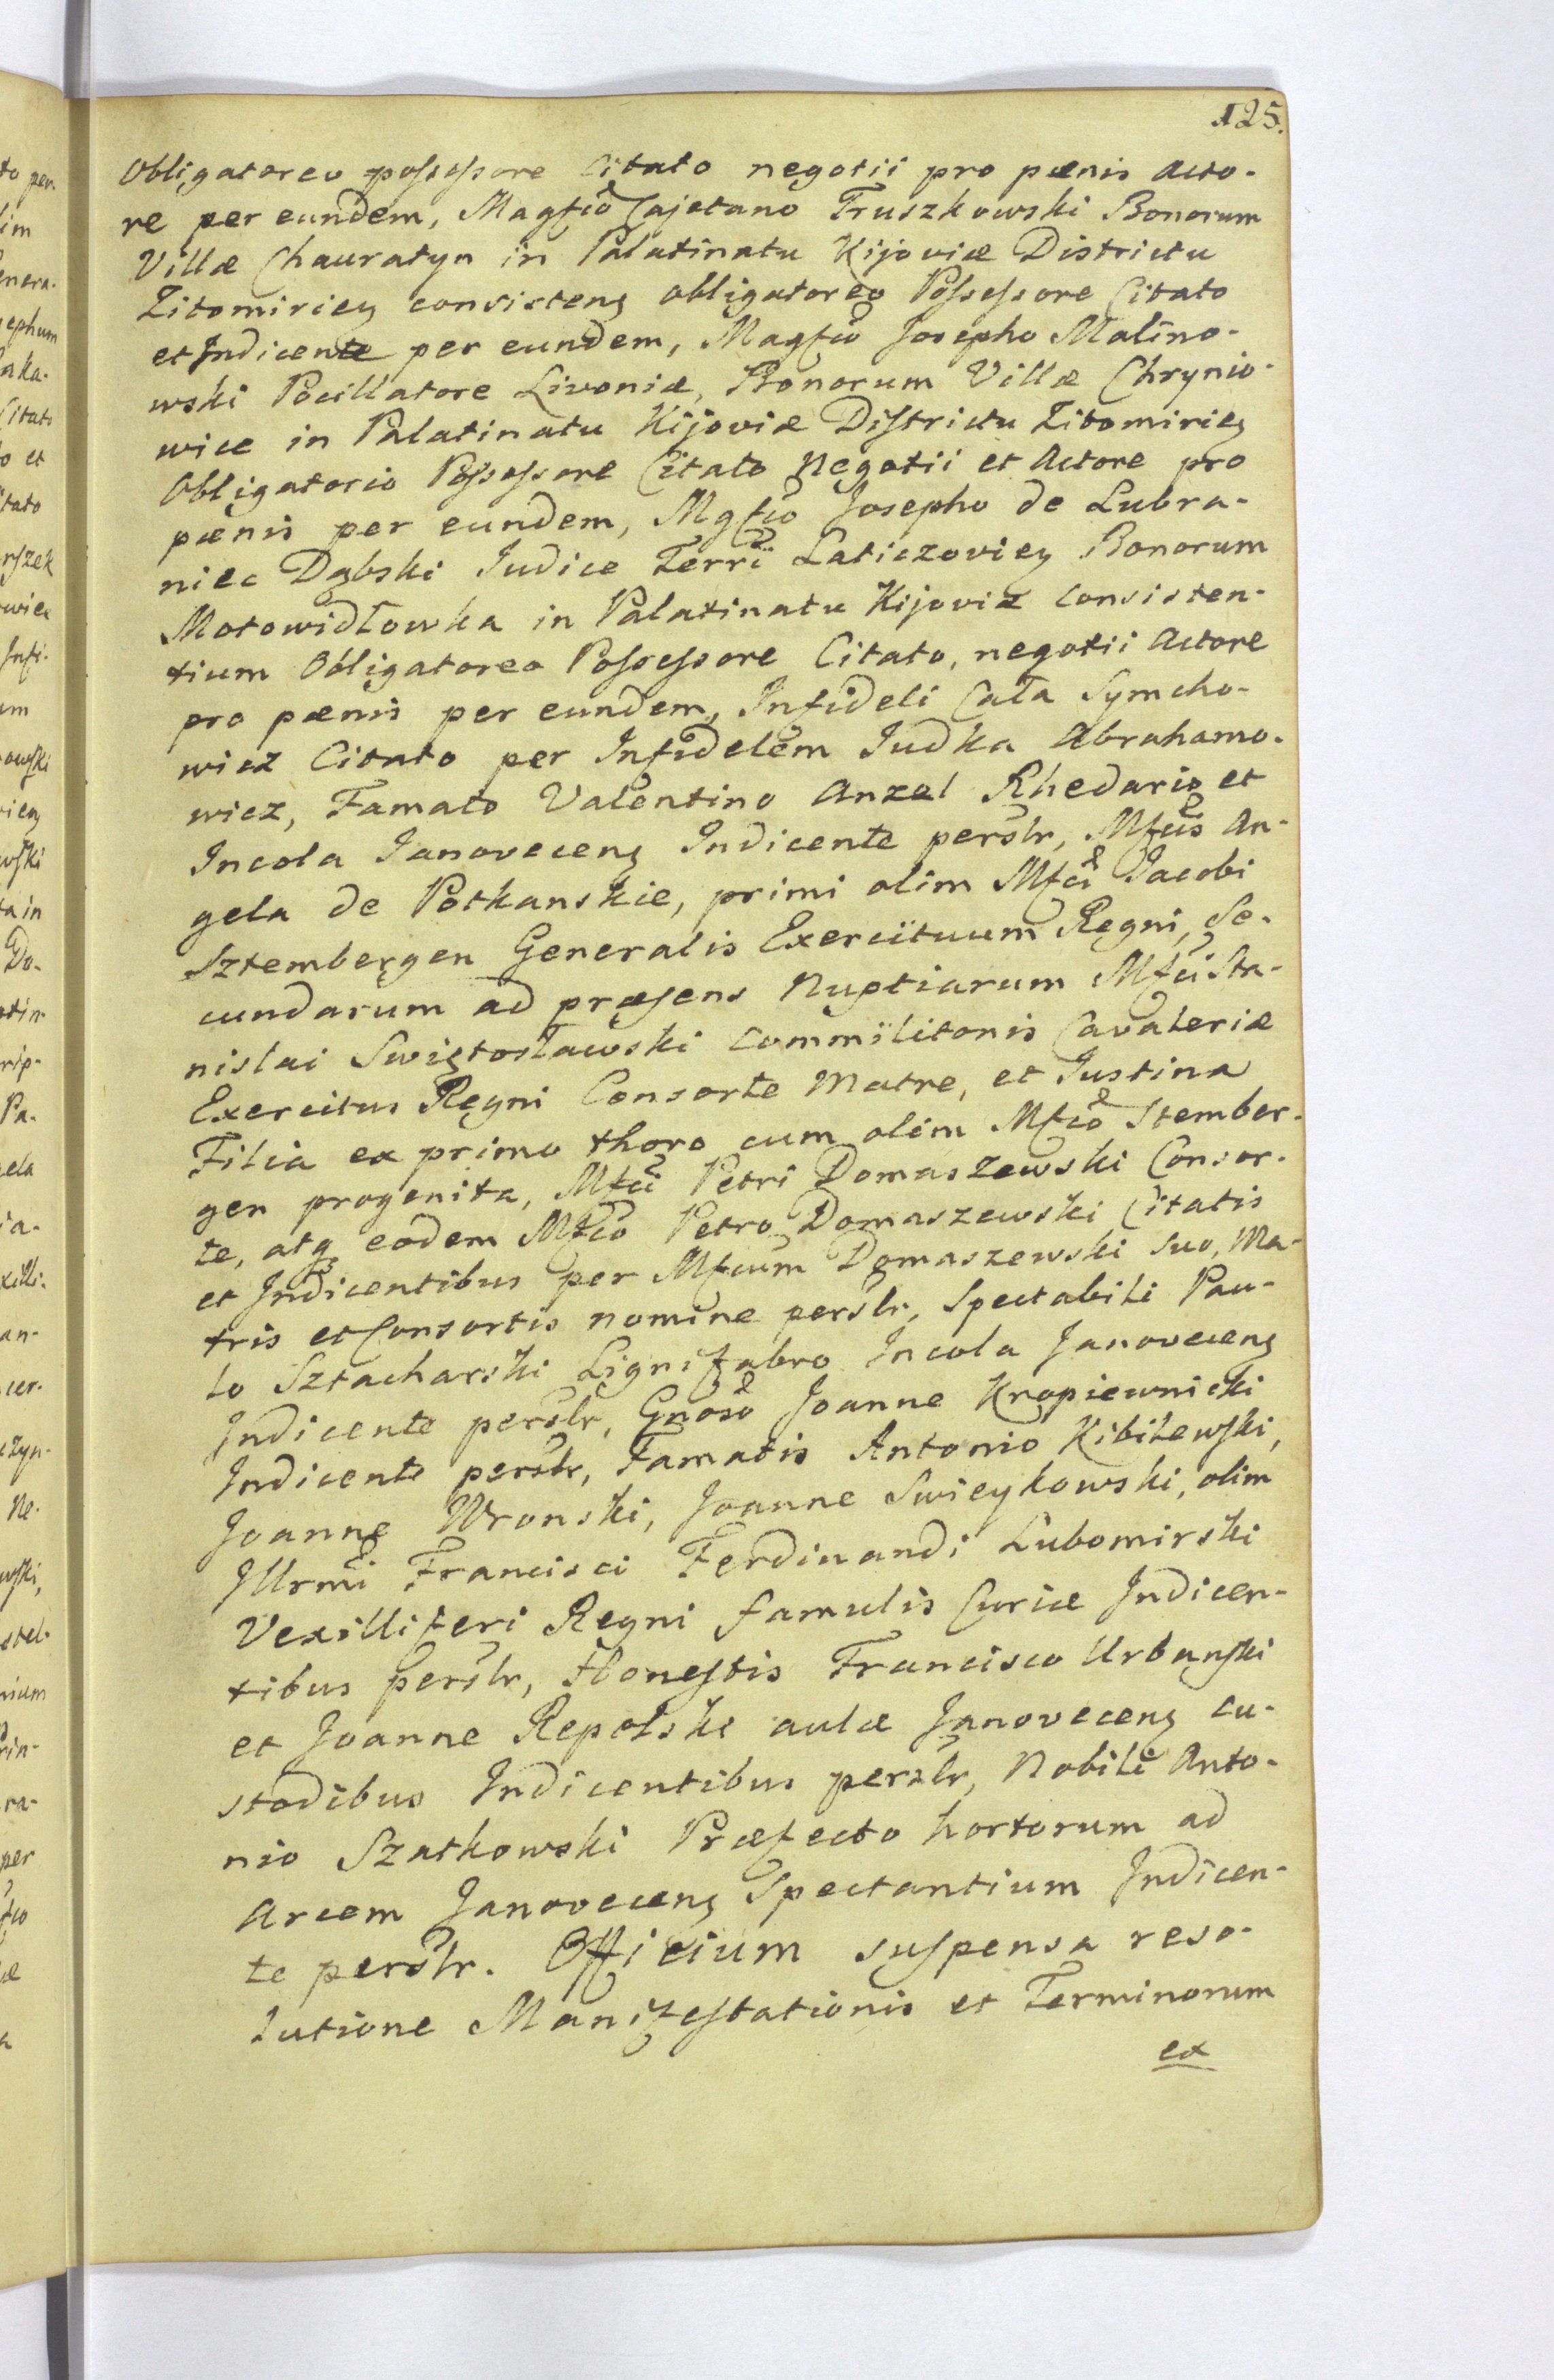 125.
Obligatoreo possessore Citato negotii pro pœnis acto-
re per eundem, Magfco Cajetano Truszkowski Bonorum
Villæ Chauratyn in Palatinatu Kijoviæ Districtu
Zitomirien consistens obligatoreo Possessore Citato
et Indicente per eundem, Magfco Josepho Malino-
wski Pocillatore Livoniæ, Bonorum Villæ Chrynio-
wice in Palatinatu Kijoviæ Districtu Zitomirien
Obligatorio Possessore Citato Negotii et Actore pro
pœnis per eundem, Mgfco Josepho de Lubra-
niec Dąbski Judice Terri Laticzovien Bonorum
Motowidłowka in Palatinatu Kijoviæ consisten-
tium Obligatoreo Possessore Citato, negotii Actore
pro pœnis per eundem, Infideli Cała Symcho-
wicz Citato per Infidelem Judka Abrahamo-
wicz, Famato Valentino Anzel Rhedario et
Incola Janovecens Indicente perslr, Mfcis An-
gela de Potkanskie, primi olim Mfci Jacobi
Sztembergen Generalis Exercituum Regni, Se-
cundarum ad præsens Nuptiarum Mfci Sta-
nislai Swiętosławski Commilitonis Cavaleriæ
Exercitus Regni Consorte Matre, et Justina
Filia ex primo thoro cum olim Mfco Stember-
gen progenita, Mfci Petri Domaszewski Consor-
te, atq eodem Mfco Petro Domaszewski Citatis
et Indicentibus per Mfcum Domaszewski suo, Ma-
tris et Consortis nomine perslr, Spectabili Pau-
lo Sztacharski Lignifabro Incola Janovecens
Indicente perslr, Gnoso Joanne Kropiewnicki
Indicente perslr, Famatis Antonio Kibilewski,
Joanne Wronski, Joanne Swieykowski, olim
Illrmi Francisci Ferdinandi Lubomirski
Vexilliferi Regni famulis Curiæ Indicen-
tibus perslr, Honestis Francisco Urbanski
et Joanne Repelski aulæ Janovecens cu-
stodibus Indicentibus perslr, Nobili Anto-
nio Szatkowski Præfecto hortorum ad
Arcem Janovecens Spectantium Indicen-
te perslr. Officium suspensa reso-
lutione Manifestationis et Terminorum
ex